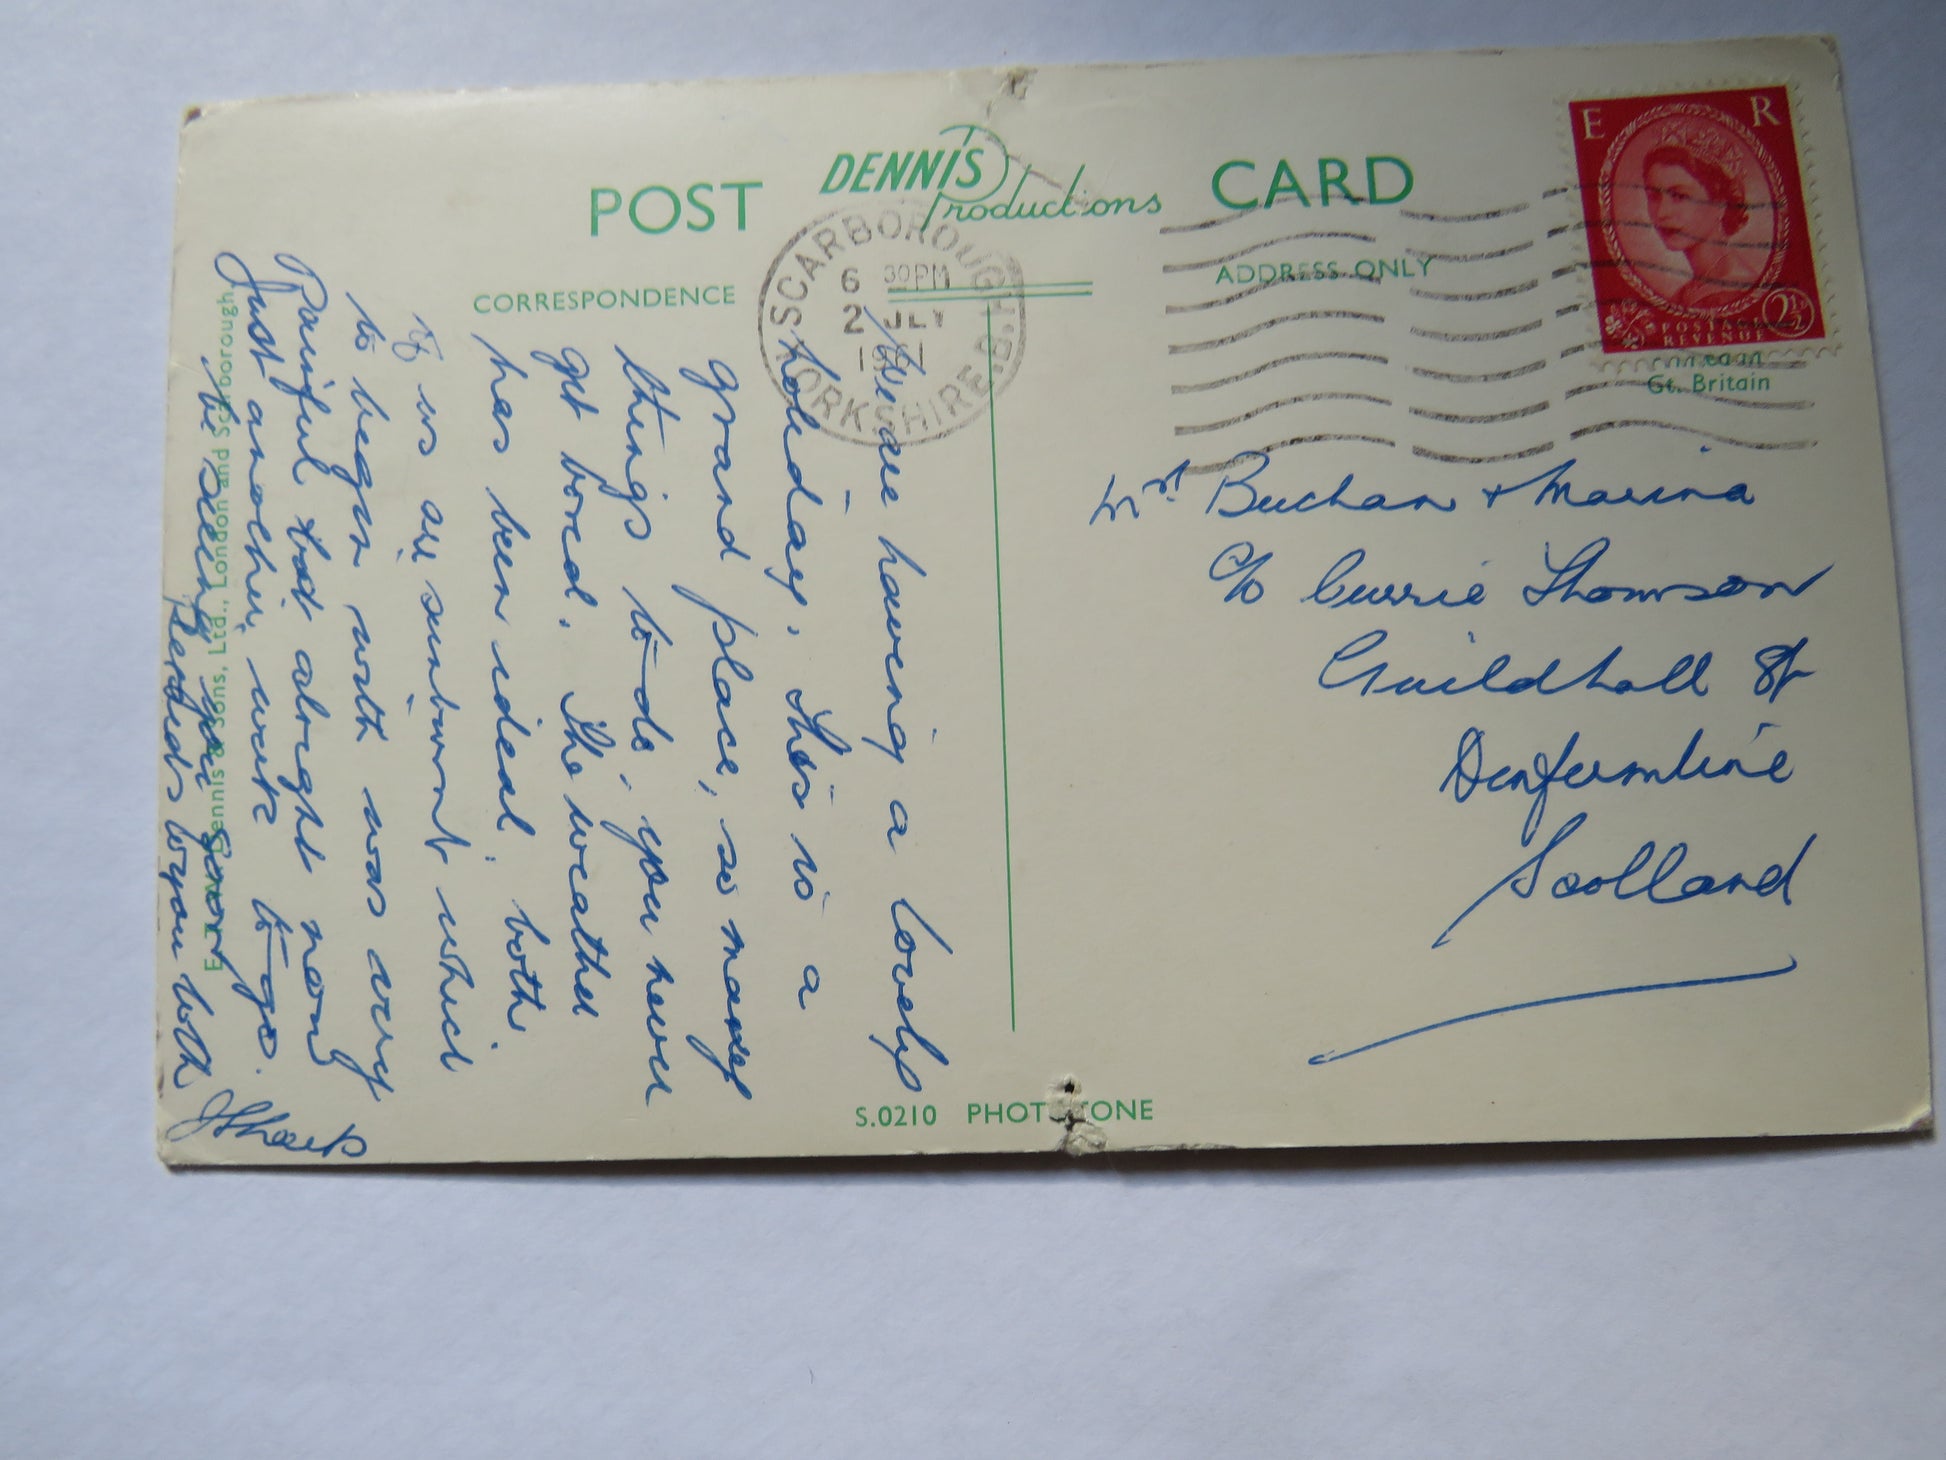 POST
DENNIS
Productions
CARD
CORRESPONDENCE
ADDRESS ONLY
SCARBOROUGH
6 30PM
2 JLY
YORKSHIRE
E R
POSTAGE
REVENUE
2½
Gt. Britain
We are having a lovely
holiday. This is a
grand place, so many
things to do, you never
get bored. The weather
has been ideal, both
of us all sunburnt which
to begin with was very
Painful but alright now
Just another week to go.
be seeing you soon
Regards to you both
J Sharp
Mrs Buchan + Marina
c/o Currie Thomson
Guildhall St
Dunfermline
Scotland
E. T. W. Dennis & Sons, Ltd., London and Scarborough
S.0210 PHOTOTONE